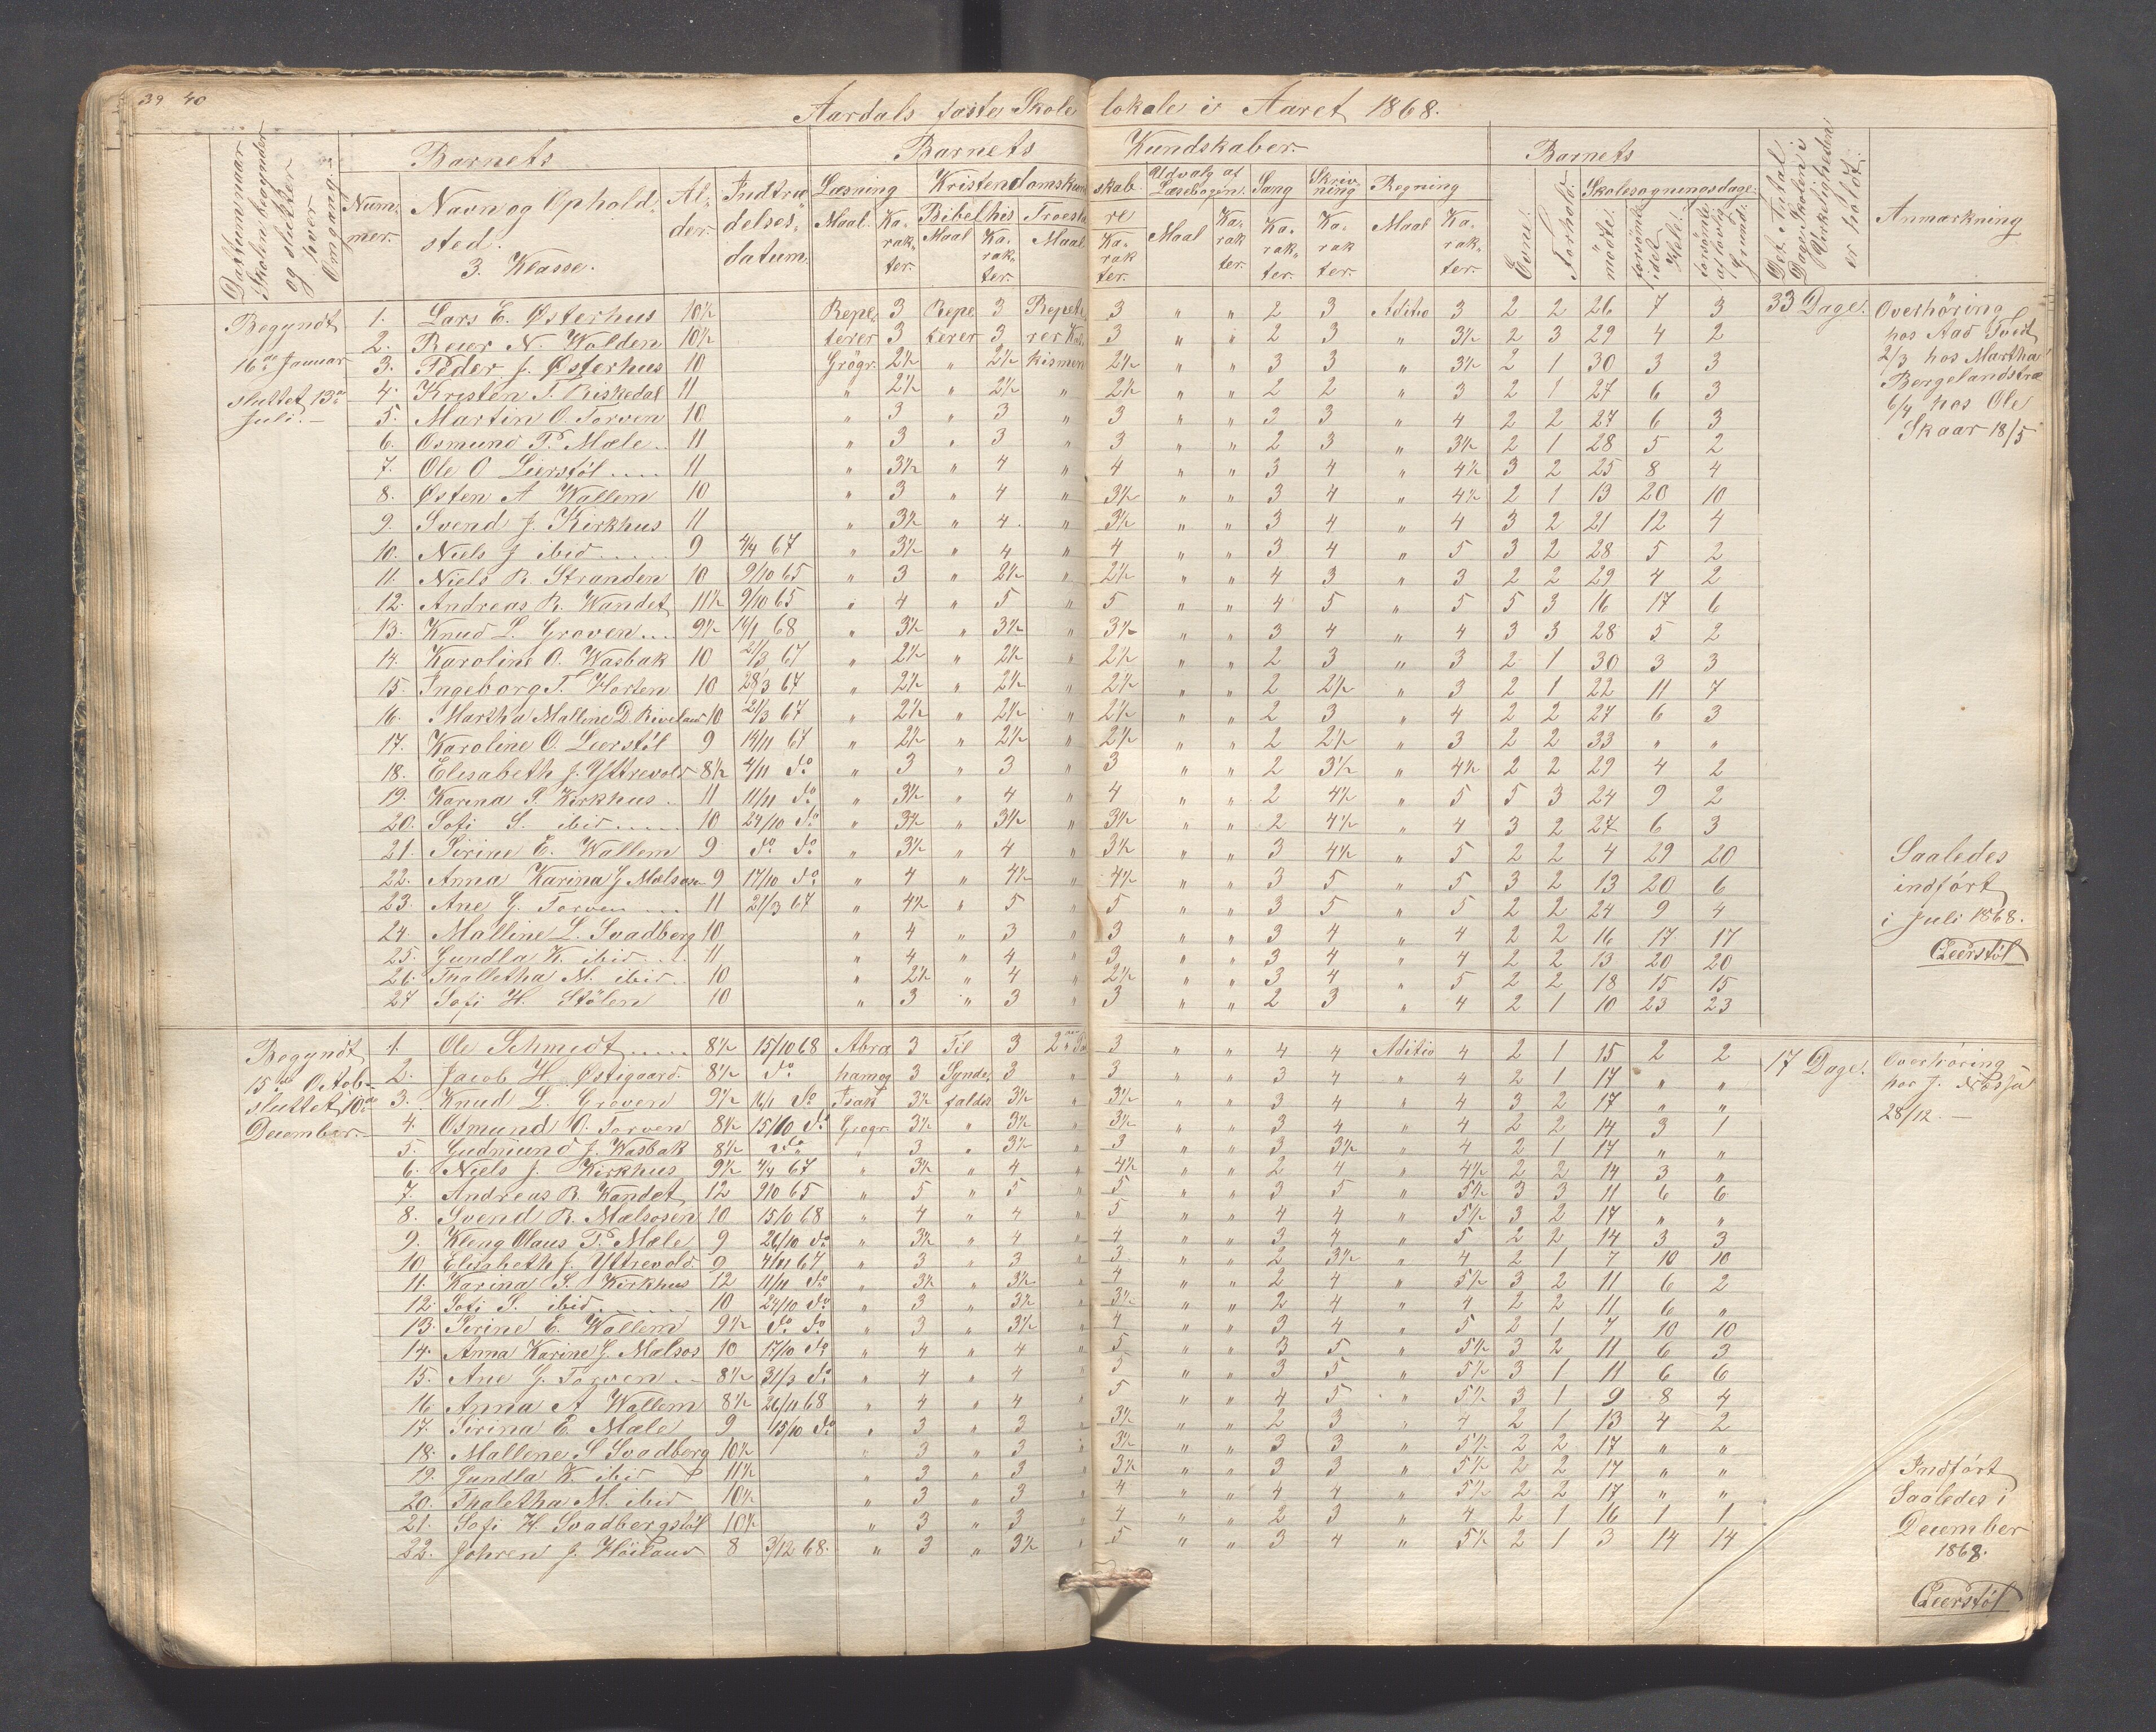 39 40
Aardals faste Skole lokale i Aaret 1868.
Dattum naar Skolen begynder og slutter hver Omgang.
Barnets
Barnets Kundskaber.
Barnets
Det Antal Dage Skolen i Virkeligheden er holdt.
Anmærkning
Num-mer. Navn og Opholdsted. 3. Klasse. Al-der. Indtrædelses-datum.
Læsning Kristendomskundskab Udvalg af Læsebogen. Sang Skriv-ning Regning
Evne. Forhold. Skolesøgningsdage.
Maal. Ka-rak-ter. Bibelhis Maal Ka-rak-ter. Troesla Maal re Ka-rak-ter. Maal Ka-rak-ter. Ka-rak-ter. Ka-rak-ter. Maal Ka-rak-ter. mödte. forsömte i det Hele. forsömte af lovlig Grund.
Begyndt 16de Januar sluttet 13de Juli.
1. Lars E. Østerhus 10½ Repe- 3 Repe 3 Repete 3 " " 2 3 Aditio 3 2 2 26 7 3 33 Dage.
2. Reier N Volden 10½ terer 3 terer 3 rer Ka- 3 " " 2 3 " 3½ 2 3 29 4 2
3. Peder J. Østerhus 10 Grögr. 2½ " 2½ kismen 2½ " " 3 3 " 3½ 2 1 30 3 3
4. Kristen T. Riskedal 11 " 2½ " 2½ " 2½ " " 2 2 " 3 2 1 27 6 3
5. Martin O. Torven 10 " 3 " 3 " 3 " " 3 3 " 4 2 2 27 6 3
6. Osmund P. Mæle 11 " 3 " 3 " 3 " " 2 3 " 3½ 2 1 28 5 2
7. Ole O Leerstöl 11 " 3½ " 4 " 4 " " 3 4 " 4½ 3 2 25 8 4
8. Østen A Wallem 10 " 3 " 4 " 3½ " " 3 4 " 4½ 2 1 13 20 10
9. Svend J. Kirkhus 11 " 3½ " 4 " 3½ " " 3 4 " 4 3 2 21 12 4
10. Niels J ibid 9 4/4 67 " 3½ " 4 " 4 " " 3 4 " 5 3 2 28 5 2
11. Niels R. Stranden 10 9/10 65 " 3 " 2½ " 2½ " " 4 3 " 3 2 2 29 4 2
12. Andreas R. Wandet 11½ 9/10 65 " 4 " 5 " 5 " " 4 5 " 5 5 3 16 17 6
13. Knud L. Groven 9½ 16/1 68 " 3½ " 3½ " 3½ " " 3 4 " 4 3 3 28 5 2
14. Karoline O. Wasbak 10 2/3 67 " 2½ " 2½ " 2½ " " 2 3 " 3 2 1 30 3 3
15. Ingeborg T. Horten 10 28/3 67 " 2½ " 2½ " 2½ " " 2 2½ " 3 2 1 22 11 7
16. Martha Malline D. Riveland 10 21/3 67 " 2½ " 2½ " 2½ " " 2 3 " 4 2 2 27 6 3
17. Karoline O. Leerstöl 9 14/11 67 " 2½ " 2½ " 2½ " " 2 2½ " 3 2 2 33 " "
18. Elisabeth J. Yttrevold 8½ 4/11 do " 3 " 3 " 3 " " 2 3½ " 4½ 2 2 29 4 2
19. Karina S. Kirkhus 11 11/11 do " 3½ " 4 " 4 " " 2 4½ " 5 5 3 24 9 2
20. Sofi S. ibid 10 24/10 do " 3½ " 3½ " 3½ " " 2 4½ " 4 3 2 27 6 3
21. Sirine E. Wallem 9 do do " 3½ " 4 " 3½ " " 3 4½ " 5 2 2 4 29 20
22. Anna Karina G Mælsosen 9 17/10 do " 4 " 4½ " 4½ " " 3 5 " 5 3 2 13 20 6
23. Ane G. Torven 11 21/3 67 " 4½ " 5 " 5 " " 3 5 " 5 2 2 24 9 4
24. Malline L. Svadberg 10 " 4 " 3 " 3 " " 3 4 " 4 2 2 16 17 17
25. Gundla K. ibid 11 " 4 " 4 " 3 " " 3 4 " 4 2 2 13 20 20
26. Thaletha M. ibid 10 " 2½ " 4 " 2½ " " 3 4 " 5 2 2 18 15 15
27 Sofi H. Stölen 10 " 3 " 3 " 3 " " 2 3 " 4 2 1 10 23 23
Overhöring
hos Aad Tved
2/3 hos Martha
Bergelandstræ
6/4 hos Ole
Skaar 18/5
Saaledes
indfört
i Juli 1868.
OLeerstöl
Begyndt 15de Octob- sluttet 10de December.
1. Ole Schmidt 8½ 15/10 68 Abra 3 Til 3 2 3 " " 4 4 Aditio 4 2 1 15 2 2 17 Dage.
2. Jacob H. Østigaard. 8½ do ham og 3 Synde- 3 " 3 " " 3 4 " 4 2 1 17 " "
3. Knud L. Groven 9½ 16/1 do Isak 3½ faldet 3½ " 3½ " " 3 4 " 4 3 2 17 " "
4. Osmund O. Torven 8½ 15/10 do Grögr. 3½ " 3½ " 3½ " " 3 4 " 4 2 2 14 3 1
5. Gudmund J. Wasbak 8½ do " 3 " 3½ " 3 " " 3 3½ " 4 2 1 17 " "
6. Niels J. Kirkhus 9½ 4/4 67 " 3½ " 4 " 4½ " " 2 4 " 4½ 2 2 14 3 "
7. Andreas R. Wandet 12 9/10 65 " 5 " 5 " 5 " " 3 5 " 5½ 3 3 11 6 6
8. Svend R. Mælsosen 10 15/10 68 " 4 " 4 " 5 " " 4 4 " 5½ 3 2 17 " "
9. Kleng Olaus P. Mæle 9 26/10 do " 3½ " 4 " 4 " " 3 4 " 5 2 2 14 3 3
10 Elisabeth J. Yttrevold 9 4/11 67 " 3 " 3 " 3 " " 2 3½ " 4 2 1 7 10 10
11. Karina S. Kirkhus 12 11/11 do " 3½ " 3½ " 4 " " 2 4 " 5½ 3 2 11 6 2
12. Sofi S. ibid 10 24/10 do " 3 " 3½ " 3½ " " 2 4 " 4 2 2 11 6 "
13. Sirine E. Wallem 9½ do do " 3 " 3½ " 4 " " 3 4 " 5 2 1 7 10 10
14. Anna Karine G. Mælsos 10 17/10 do " 4 " 4 " 5 " " 3 5 " 5½ 3 2 11 6 3
15. Ane G. Torven 8½ 31/3 do " 4 " 4 " 5 " " 3 5 " 5½ 3 1 11 6 6
16 Anna A Wallem 8½ 26/11 68 " 4 " 4 " 5 " " 4 5 " 5½ 3 1 9 8 4
17. Sirina E. Mæle 9 15/10 do " 3 " 3 " 3½ " " 2 3 " 4 2 1 13 4 2
18. Mallene S Svadberg 10½ " 3 " 3 " 3½ " " 3 3 " 5½ 2 2 17 " "
19. Gundla K. ibid 11½ " 3 " 3 " 3½ " " 3 3 " 5½ 2 2 17 " "
20. Thaletha M. ibid 10½ " 3 " 3 " 4 " " 4 4 " 5½ 2 2 17 " "
21. Sofi H. Svadbergstöl 10½ " 3 " 3 " 4 " " 2 3 " 4 2 1 16 1 1
22. Johren J. Höiland 8 3/12 68. " 3 " 3½ " 5 " " 3 4 " 5½ 2 1 3 14 14
Overhöring
hos J.
28/12.
Indfört
Saaledes i
December
1868.
OLeerstöl